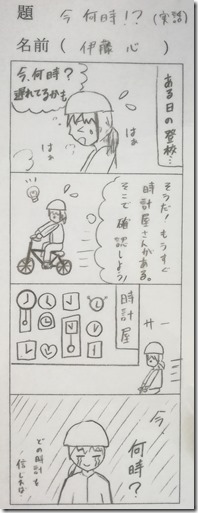 題 今 何時!? (実話)
名前 (伊藤 心)
ある日の登校…
今、何時?
遅れてるかも
はぁ
はぁ
そうだ!もうすぐ
時計屋さんがある。
そこで確認しよう!
時計屋
サー
今、
何時?
どの時計を
信じれば